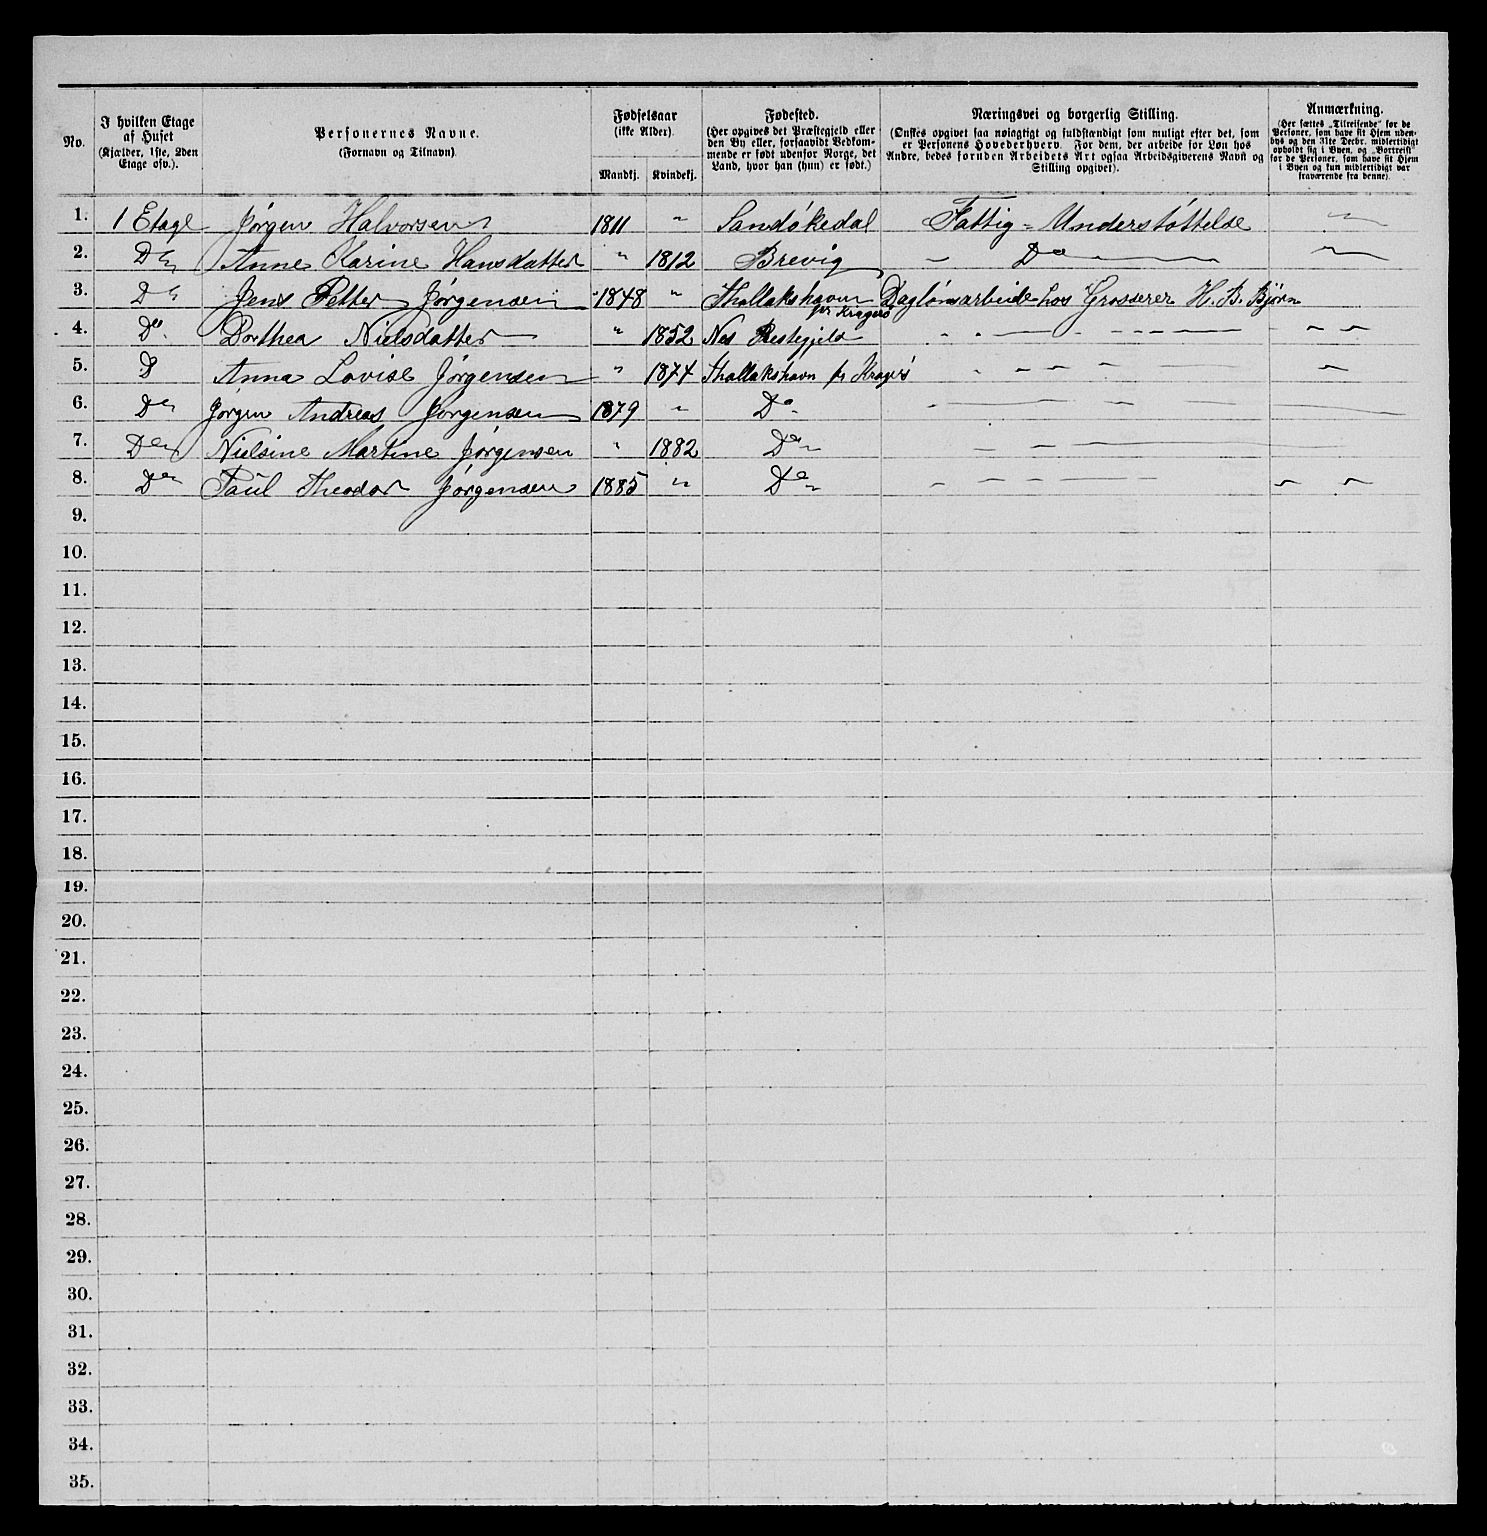 No.
I hvilken Etage af Huset (Kjælder, 1ste, 2den Etage osv.).
Personernes Navne. (Fornavn og Tilnavn)
Fødselsaar (ikke Alder).
Mandkj. Kvindekj.
Fødested. (Her opgives det Præstegjeld eller den By eller, forsaavidt Vedkommende er født udenfor Norge, det Land, hvor han (hun) er født.)
Næringsvei og borgerlig Stilling. (Ønskes opgivet saa nøiagtigt og fuldstændigt som muligt efter det, som er Personens Hovederhverv. For dem, der arbeide for Løn hos Andre, bedes foruden Arbeidets Art ogsaa Arbeidsgiverens Navn og Stilling opgivet).
Anmærkning. (Her sættes „Tilreisende“ for de Personer, som have sit Hjem udenbys og den 31te Decbr. midlertidigt opholdt sig i Byen, og „Bortreist“ for de Personer, som have sit Hjem i Byen og kun midlertidigt var fraværende fra denne).
1. 1 Etage Jørgen Halvorsen 1811 " Sandøkedal Fattig-Understøttelse
2. Do Anne Karine Hansdatter " 1812 Brevig Do
3. Do Jens Petter Jørgensen 1848 " Thallakshavn pr Kragerø Daglønsarbeide hos Grosserer H. B. Bjørn
4. Do Dorthea Nielsdatter " 1852 Nes Prestegjeld
5. D Anna Lovise Jørgensen " 1874 Thallakshavn pr Kragerø
6. Do Jørgen Andreas Jørgensen 1879 " Do
7. Do Nielsine Martine Jørgensen " 1882 Do
8. Do Paul Theodor Jørgensen 1885 " Do
9.
10.
11.
12.
13.
14.
15.
16.
17.
18.
19.
20.
21.
22.
23.
24.
25.
26.
27.
28.
29.
30.
31.
32.
33.
34.
35.